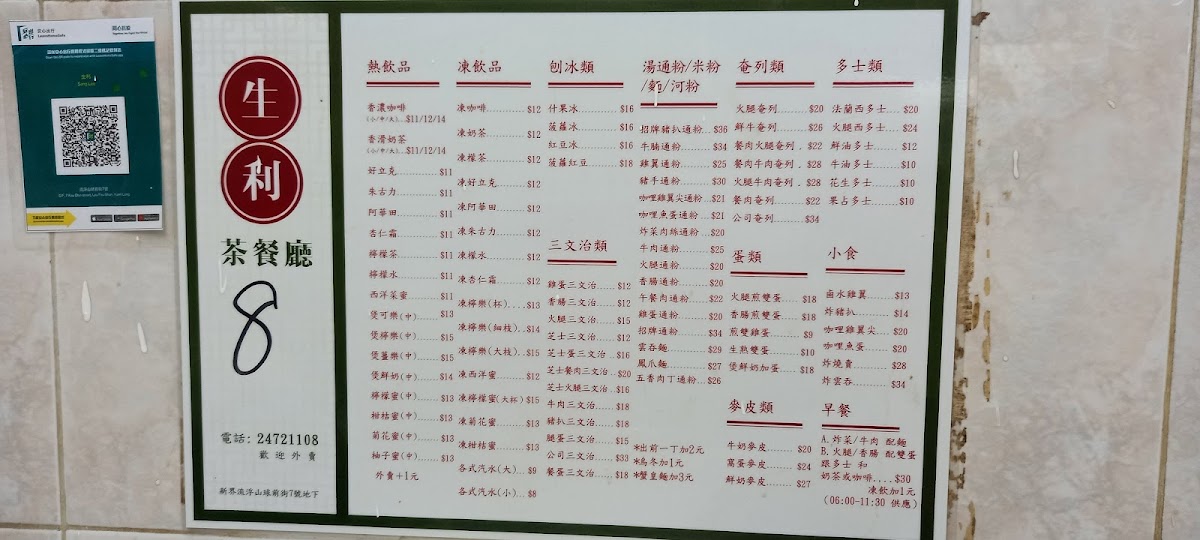 安心出行
LeaveHomeSafe
同心抗疫
生利
生
利
茶餐廳
8
電話: 24721108
歡迎外賣
新界流浮山球前街7號地下
熱飲品
香濃咖啡
(小/中/大)...$11/12/14
香滑奶茶
(小/中/大)...$11/12/14
好立克 $11
朱古力 $11
阿華田 $11
杏仁霜 $11
檸檬茶 $11
檸檬水 $11
西洋菜蜜 $11
煲可樂(中) $13
煲檸樂(中) $15
煲薑樂(中) $15
煲鮮奶(中) $14
檸檬蜜(中) $13
柑桔蜜(中) $13
菊花蜜(中) $13
柚子蜜(中) $13
外賣+1元
凍飲品
凍咖啡 $12
凍奶茶 $12
凍檬茶 $12
凍好立克 $12
凍阿華田 $12
凍朱古力 $12
凍檬水 $12
凍杏仁霜 $12
凍檸樂(杯)....$13
凍檸樂(細枝)..$14
凍檸樂(大枝)..$15
凍西洋蜜 $12
凍檸檬蜜(大杯) $15
凍菊花蜜 $12
凍柑桔蜜 $13
各式汽水(大)..$9
各式汽水(小)..$8
刨冰類
什果冰 $16
菠蘿冰 $16
紅豆冰 $16
菠蘿紅豆 $18
三文治類
雞蛋三文治 $12
香腸三文治 $12
火腿三文治 $15
芝士三文治 $12
芝士蛋三文治...$16
芝士餐肉三文治...$20
芝士火腿三文治...$16
牛肉三文治 $18
豬扒三文治 $18
腿蛋三文治 $15
公司三文治 $33
餐蛋三文治 $18
湯通粉/米粉
/麵/河粉
招牌豬扒通粉...$36
牛腩通粉 $34
雞翼通粉 $25
豬手通粉 $30
咖哩雞翼尖通粉..$21
咖哩魚蛋通粉...$21
炸菜肉絲通粉...$20
牛肉通粉 $25
火腿通粉 $20
香腸通粉 $20
午餐肉通粉 $22
雞蛋通粉 $20
招牌通粉 $34
雲吞麵 $29
鳳爪麵 $27
五香肉丁通粉...$26
*出前一丁加2元
*烏冬加1元
*蟹皇麵加3元
奄列類
火腿奄列 $20
鮮牛奄列 $26
餐肉火腿奄列.$22
餐肉牛肉奄列.$28
火腿牛肉奄列.$28
餐肉奄列 $22
公司奄列 $34
蛋類
火腿煎雙蛋 $18
香腸煎雙蛋 $18
煎雙雞蛋 $9
生熟雙蛋 $10
煲鮮奶加蛋 $18
麥皮類
牛奶麥皮 $20
窩蛋麥皮 $24
鮮奶麥皮 $27
多士類
法蘭西多士 $20
火腿西多士 $24
鮮油多士 $12
牛油多士 $10
花生多士 $10
果占多士 $10
小食
鹵水雞翼 $13
炸豬扒 $14
咖哩雞翼尖 $20
咖哩魚蛋 $20
炸燒賣 $28
炸雲吞 $34
早餐
A.炸菜/牛肉 配麵
B.火腿/香腸 配雙蛋
跟多士 和
奶茶或咖啡....$30
凍飲加1元
(06:00-11:30 供應)